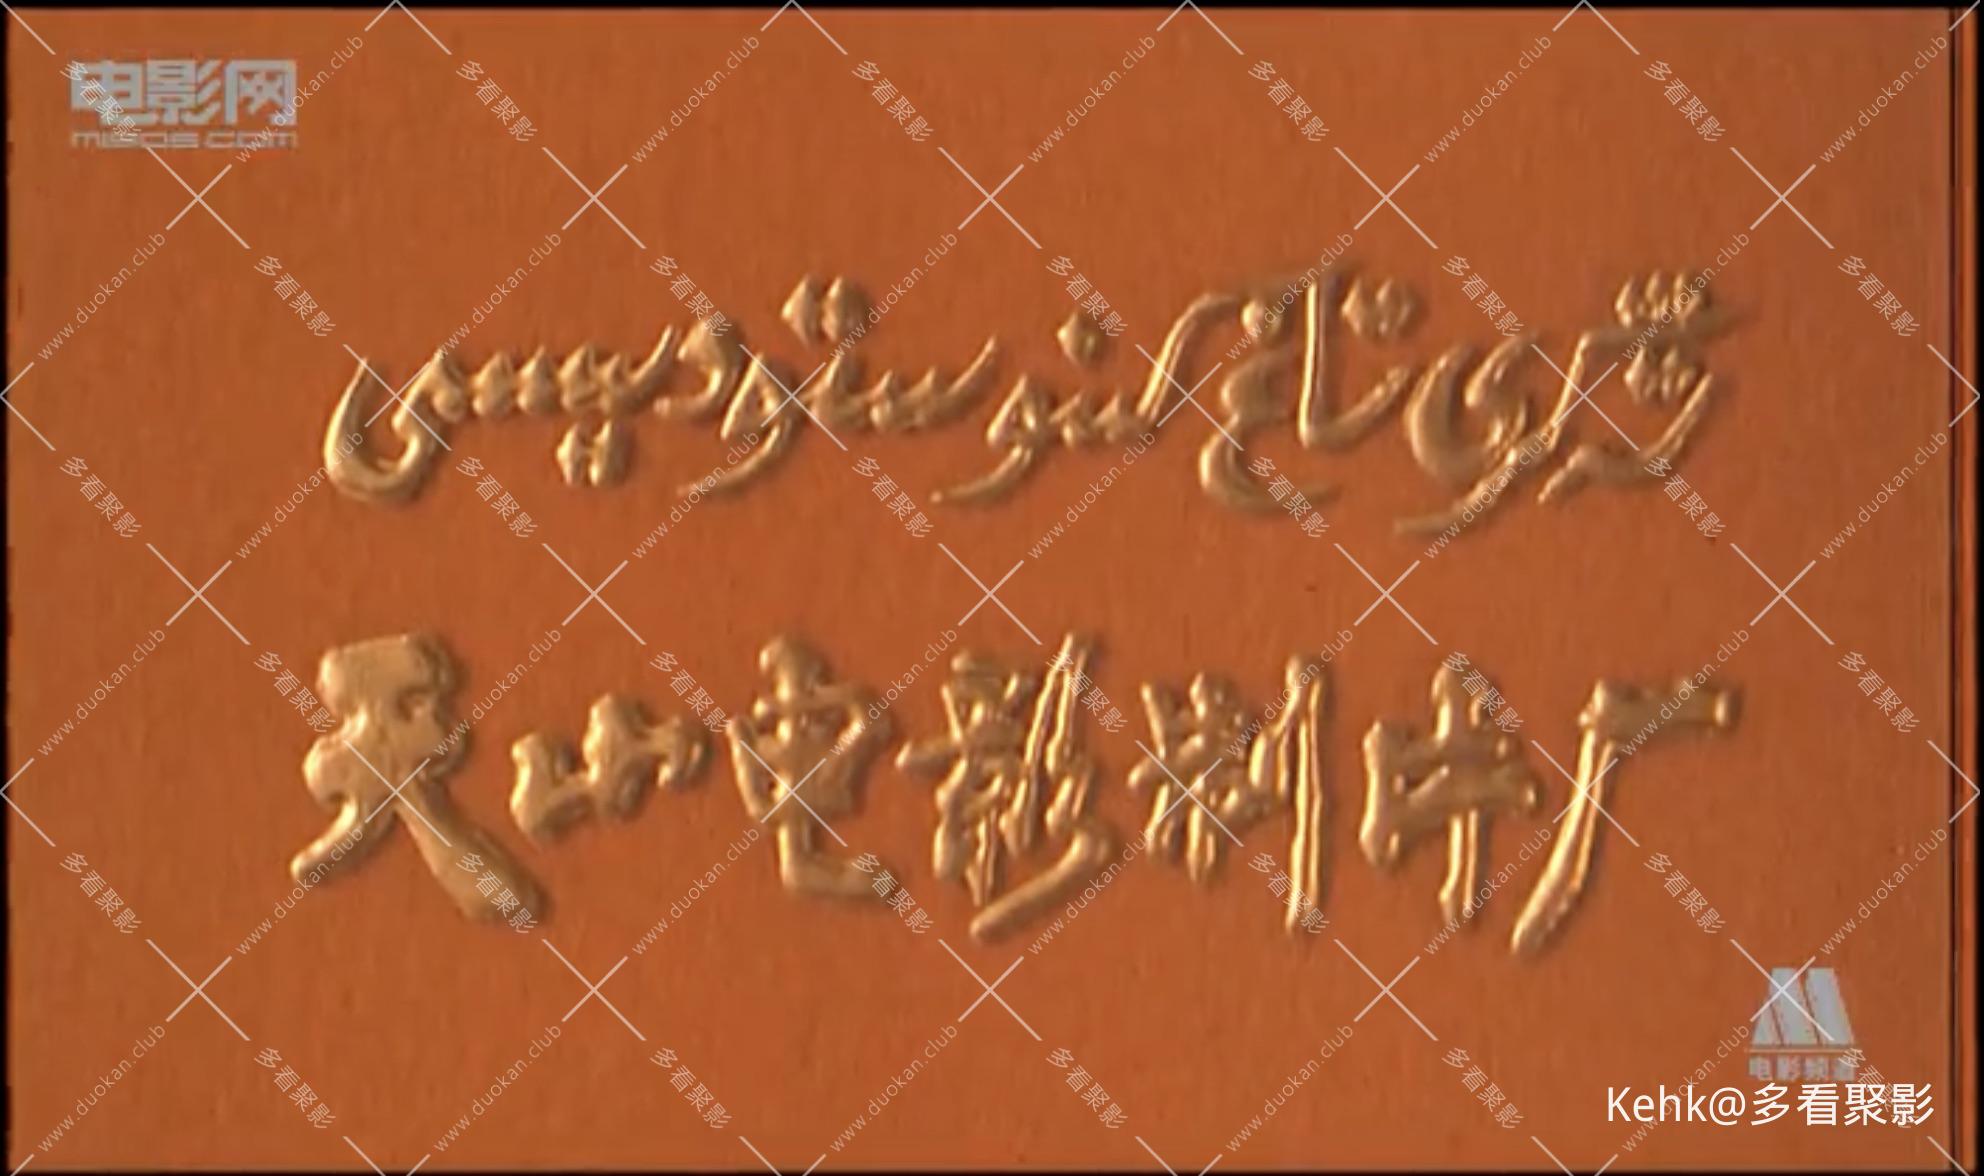 电影网
m1905.com
تەڭرى تاغ كىنو ستۇدىيىسى
天山电影制片厂
电影频道
Kehk@多看聚影
多看聚影 www.duokan.club